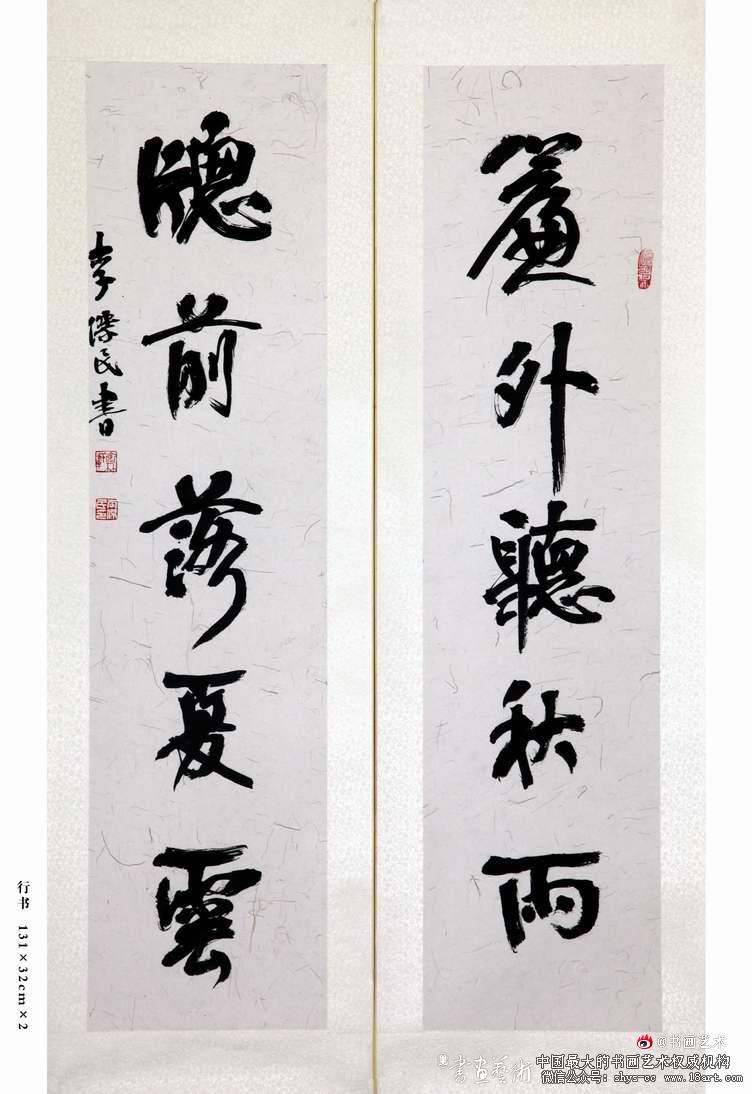 簾外聽秋雨
牕前落夏雲
李傑民書
行书 131×32cm×2
@书画艺术
書畫藝術
中国最大的书画艺术权威机构
微信公众号: shys-cc www.18art.com